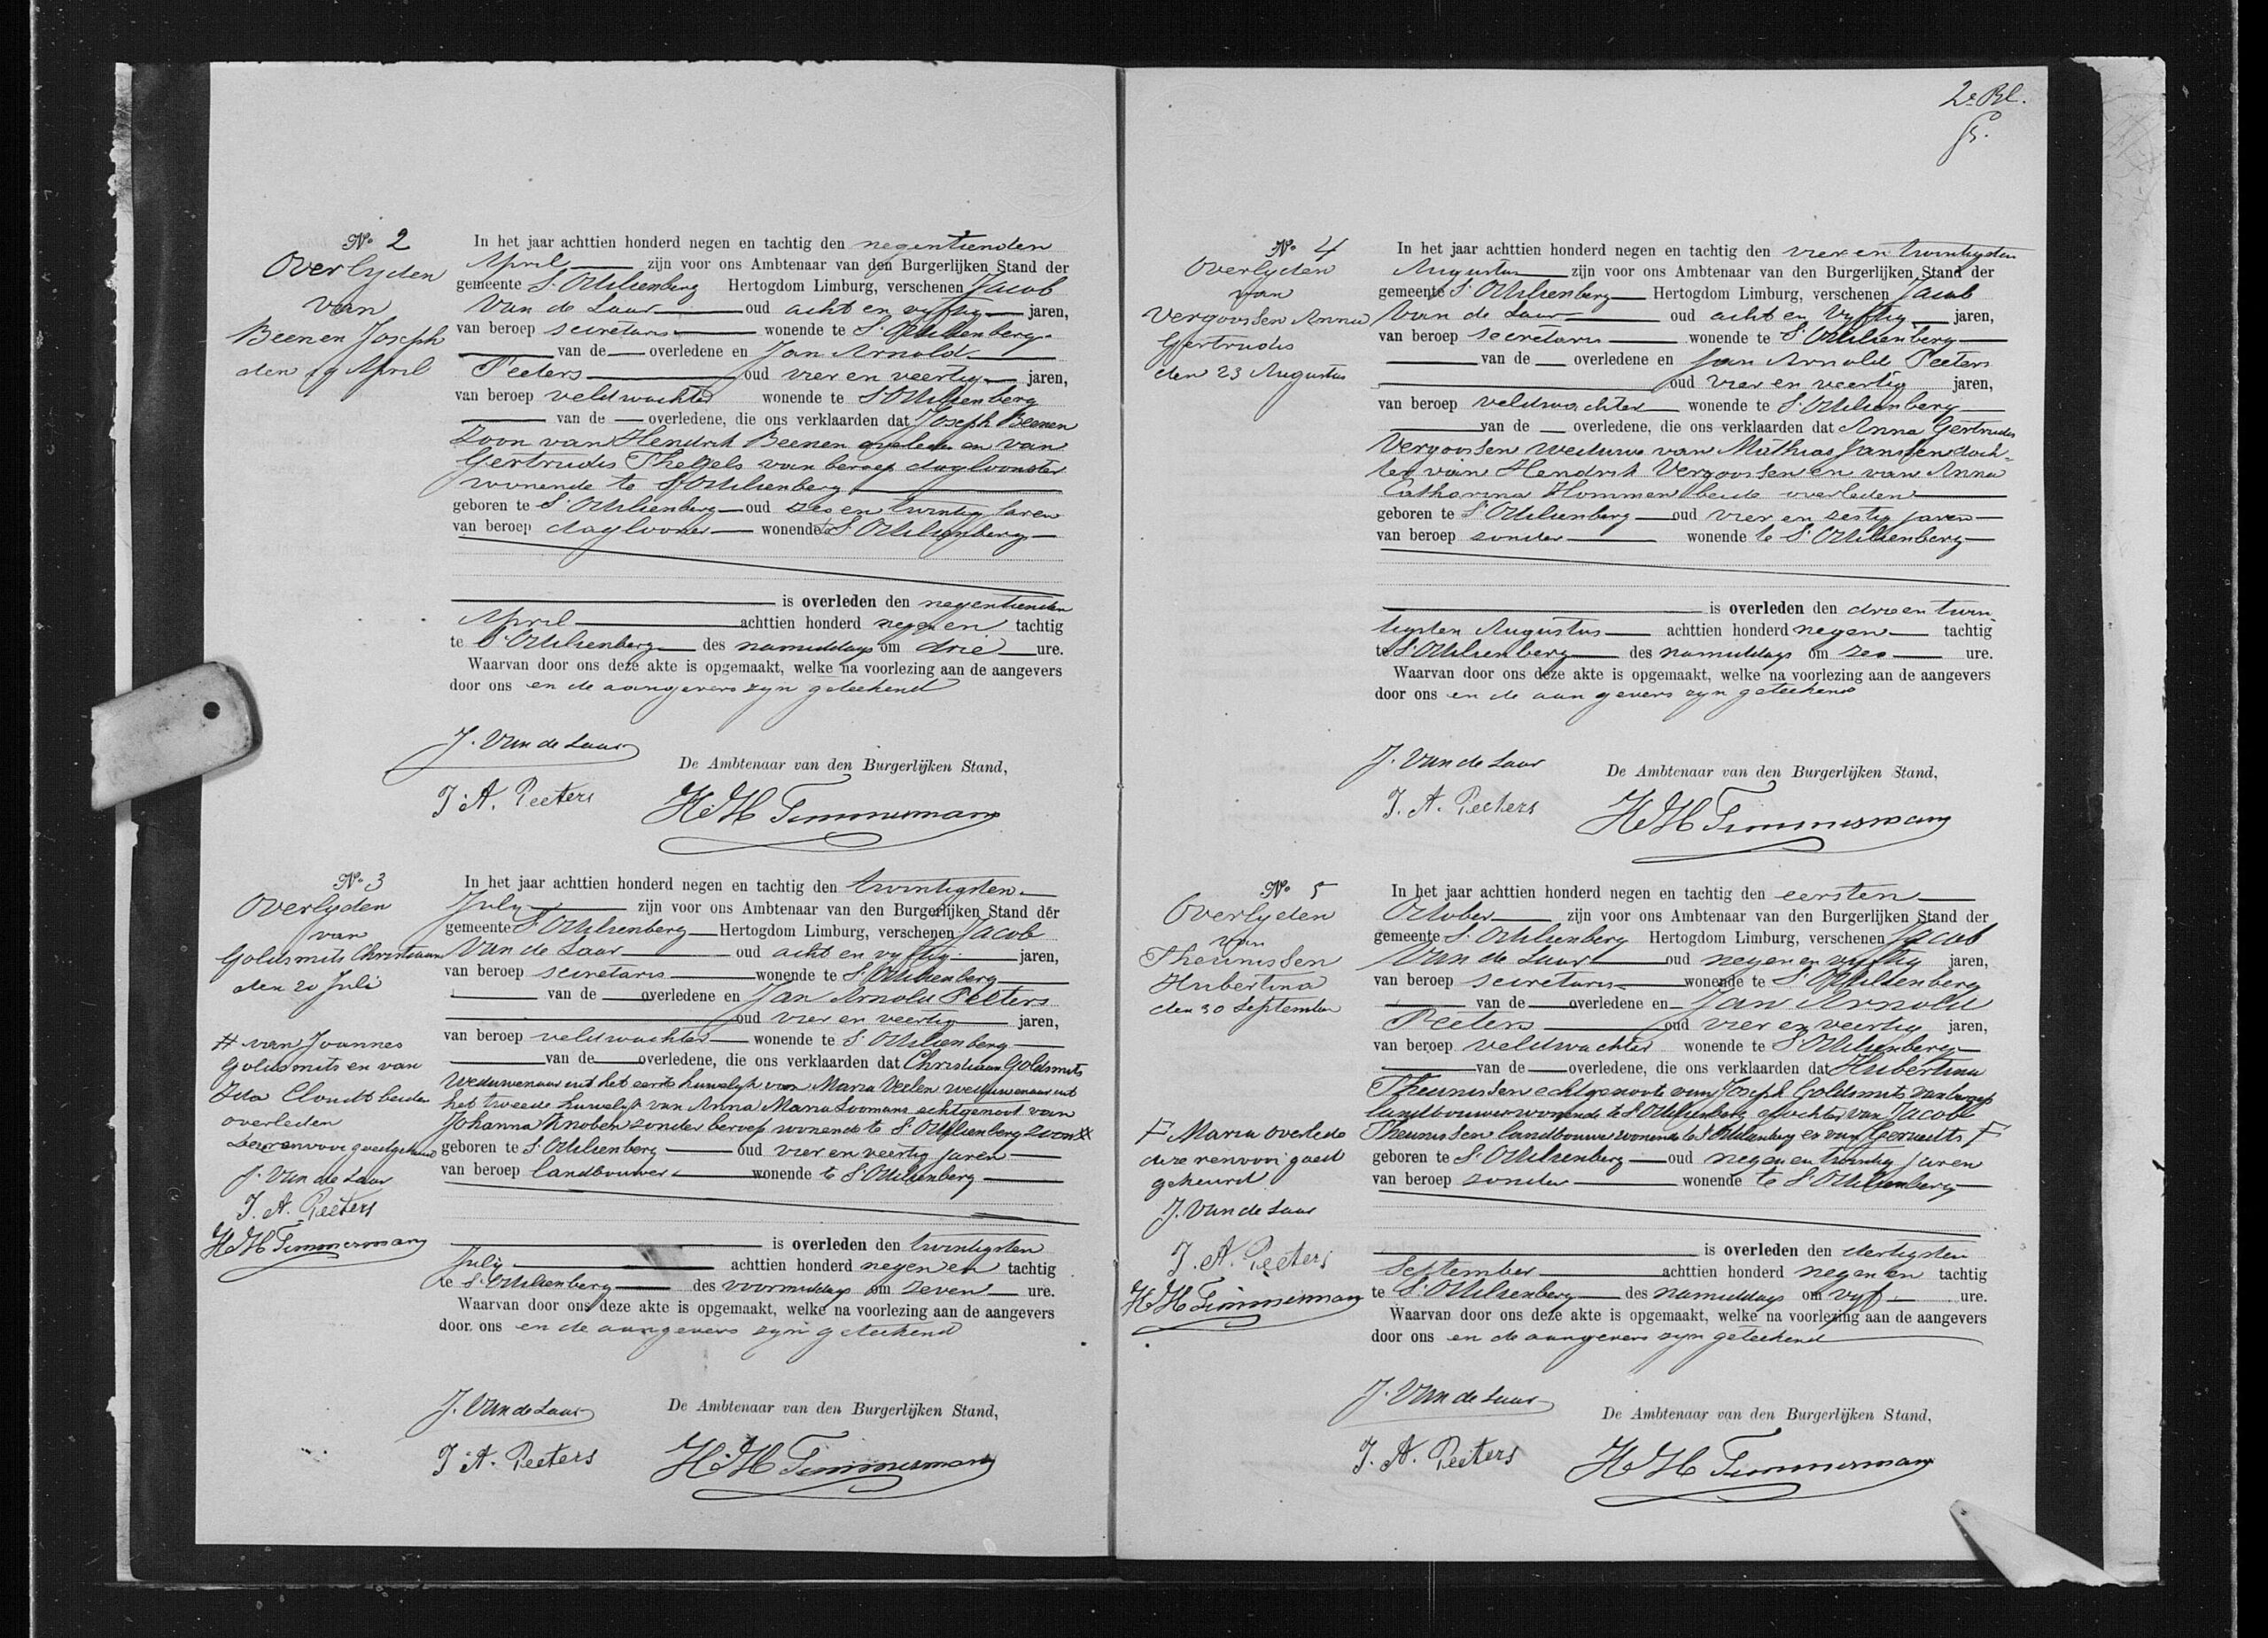 2e Bl.
No 2
Overlyden
van
Beenen Joseph
den 19 April
In het jaar achttien honderd negen en tachtig den negentienden
April zijn voor ons Ambtenaar van den Burgerlijken Stand der
gemeente St Odilienberg Hertogdom Limburg, verschenen Jacob
Van de Laar oud acht en vyftig jaren,
van beroep secretaris wonende te St Odilienberg
van de overledene en Jan Arnold
Peeters oud vier en veertig jaren,
van beroep veldwachter wonende te St Odilienberg
van de overledene, die ons verklaarden dat Joseph Beenen
zoon van Hendrik Beenen overleden en van
Gertrudis Thegels van beroep dagloonster
wonende te St Odilienberg
geboren te St Odilienberg oud zes en twintig jaren
van beroep daglooner wonende te St Odilienberg
is overleden den negentienden
April achttien honderd negen en tachtig
te St Odilienberg des namiddags om drie ure.
Waarvan door ons deze akte is opgemaakt, welke na voorlezing aan de aangevers
door ons en de aangevers zyn geteekend
J. Van de Laar
De Ambtenaar van den Burgerlijken Stand,
J. A. Peeters
H H Timmermans
No 3
Overlyden
van
Goldsmits Christiaan
den 20 Juli
# van Joannes
Goldsmits en van
Ida Cloudt beiden
overleden
deze renvooi goedgekeurd
J. Van de Laar
J. A. Peeters
H H Timmermans
In het jaar achttien honderd negen en tachtig den twintigsten
July zijn voor ons Ambtenaar van den Burgerlijken Stand der
gemeente St Odilienberg Hertogdom Limburg, verschenen Jacob
Van de Laar oud acht en vyftig jaren,
van beroep secretaris wonende te St Odilienberg
van de overledene en Jan Arnold Peeters
oud vier en veertig jaren,
van beroep veldwachter wonende te St Odilienberg
van de overledene, die ons verklaarden dat Christiaan Goldsmits
Weduwenaar uit het eerste huwelyk van Maria Verlen weduwenaar uit
het tweede huwelyk van Anna Maria Soomans echtgenoot van
Johanna Knoben zonder beroep wonende te St Odilienberg zoon #
geboren te St Odilienberg oud vier en veertig jaren
van beroep landbouwer wonende te St Odilienberg
is overleden den twintigsten
July achttien honderd negen en tachtig
te St Odilienberg des voormiddags om zeven ure.
Waarvan door ons deze akte is opgemaakt, welke na voorlezing aan de aangevers
door ons en de aangevers zyn geteekend
J. Van de Laar
De Ambtenaar van den Burgerlijken Stand,
J. A. Peeters
H H Timmermans
No 4
Overlyden
van
Vergoossen Anna
Gertrudis
den 23 Augustus
In het jaar achttien honderd negen en tachtig den vier en twintigsten
Augustus zijn voor ons Ambtenaar van den Burgerlijken Stand der
gemeente St Odilienberg Hertogdom Limburg, verschenen Jacob
Van de Laar oud acht en vyftig jaren,
van beroep secretaris wonende te St Odilienberg
van de overledene en Jan Arnold Peeters
oud vier en veertig jaren,
van beroep veldwachter wonende te St Odilienberg
van de overledene, die ons verklaarden dat Anna Gertrudis
Vergoossen weduwe van Mathias Janssen doch=
ter van Hendrik Vergoossen en van Anna
Catharina Hommen beide overleden
geboren te St Odilienberg oud vier en zestig jaren
van beroep zonder wonende te St Odilienberg
is overleden den drie en twin
tigsten Augustus achttien honderd negen tachtig
te St Odilienberg des namiddags om zes ure.
Waarvan door ons deze akte is opgemaakt, welke na voorlezing aan de aangevers
door ons en de aangevers zyn geteekend
J. Van de Laar
De Ambtenaar van den Burgerlijken Stand,
J. A. Peeters
H H Timmermans
No 5
Overlyden
van
Theunissen
Hubertina
den 30 September
F Maria overleden
deze renvooi goed
gekeurd
J. Van de Laar
J. A. Peeters
H H Timmermans
In het jaar achttien honderd negen en tachtig den eersten
October zijn voor ons Ambtenaar van den Burgerlijken Stand der
gemeente St Odilienberg Hertogdom Limburg, verschenen Jacob
Van de Laar oud negen en vyftig jaren,
van beroep secretaris wonende te St Odilienberg
van de overledene en Jan Arnold
Peeters oud vier en veertig jaren,
van beroep veldwachter wonende te St Odilienberg
van de overledene, die ons verklaarden dat Hubertina
Theunissen echtgenoote van Joseph Goldsmits van beroep
landbouwer wonende te St Odilienberg dochter van Jacob
Theunissen landbouwer wonende te St Odilienberg en van F
geboren te St Odilienberg oud negen en twintig jaren
van beroep zonder wonende te St Odilienberg
is overleden den dertigsten
September achttien honderd negen en tachtig
te St Odilienberg des namiddags om vyf ure.
Waarvan door ons deze akte is opgemaakt, welke na voorlezing aan de aangevers
door ons en de aangevers zyn geteekend
J. Van de Laar
De Ambtenaar van den Burgerlijken Stand,
J. A. Peeters
H H Timmermans